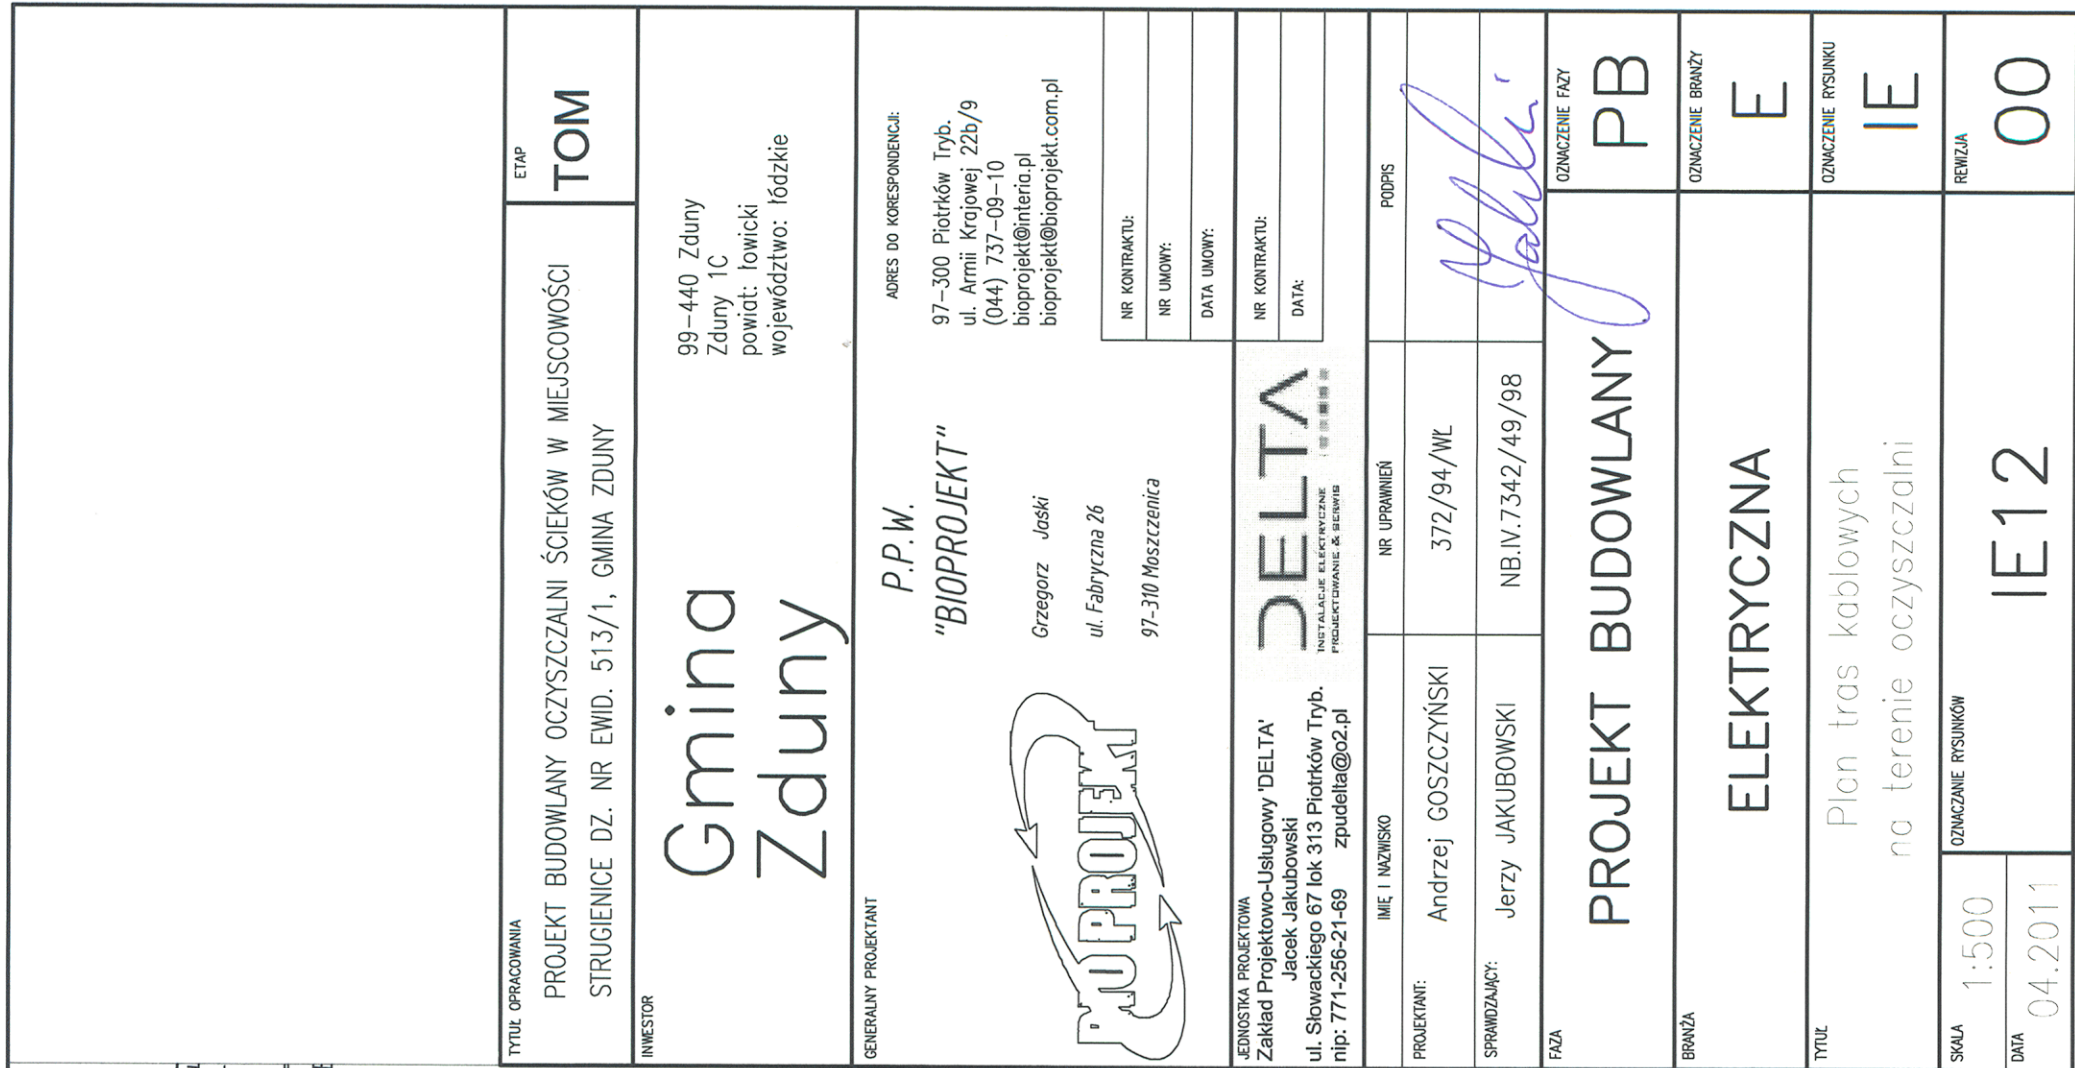 TYTUŁ OPRACOWANIA
PROJEKT BUDOWLANY OCZYSZCZALNI ŚCIEKÓW W MIEJSCOWOŚCI
STRUGIENICE DZ. NR EWID. 513/1, GMINA ZDUNY
ETAP
TOM
INWESTOR
Gmina
Zduny
99-440 Zduny
Zduny 1C
powiat: łowicki
województwo: łódzkie
GENERALNY PROJEKTANT
BIOPROJEKT
P.P.W.
"BIOPROJEKT"
Grzegorz Jaśki
ul. Fabryczna 26
97-310 Moszczenica
ADRES DO KORESPONDENCJI:
97-300 Piotrków Tryb.
ul. Armii Krajowej 22b/9
(044) 737-09-10
bioprojekt@interia.pl
bioprojekt@bioprojekt.com.pl
NR KONTRAKTU:
NR UMOWY:
DATA UMOWY:
JEDNOSTKA PROJEKTOWA
Zakład Projektowo-Usługowy 'DELTA'
Jacek Jakubowski
ul. Słowackiego 67 lok 313 Piotrków Tryb.
nip: 771-256-21-69 zpudelta@o2.pl
DELTA
INSTALACJE ELEKTRYCZNE
PROJEKTOWANIE & SERWIS
NR KONTRAKTU:
DATA:
IMIĘ I NAZWISKO NR UPRAWNIEŃ PODPIS
PROJEKTANT: Andrzej GOSZCZYŃSKI 372/94/WŁ
SPRAWDZAJĄCY: Jerzy JAKUBOWSKI NB.IV.7342/49/98
FAZA
PROJEKT BUDOWLANY
OZNACZENIE FAZY
PB
BRANŻA
ELEKTRYCZNA
OZNACZENIE BRANŻY
E
TYTUŁ
Plan tras kablowych
na terenie oczyszczalni
OZNACZENIE RYSUNKU
IE
SKALA 1:500
DATA 04.2011
OZNACZANIE RYSUNKÓW
IE12
REWIZJA
00